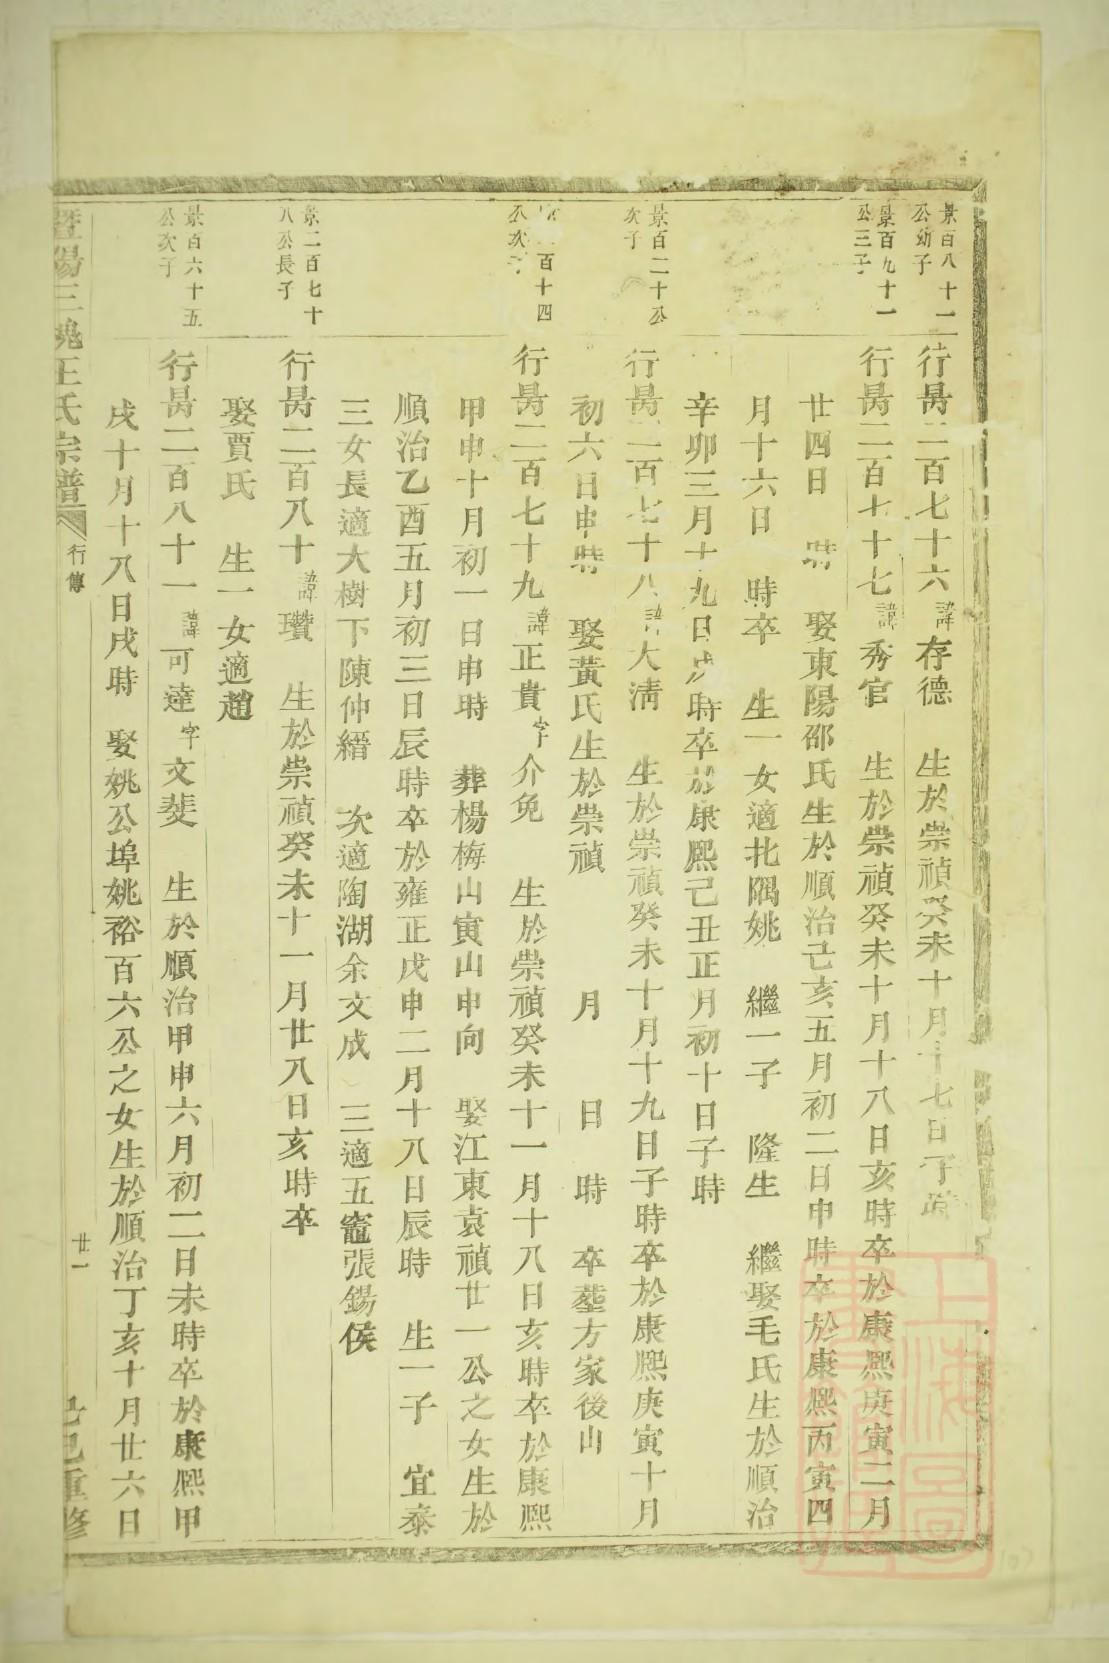 景百八十一
公幼子
行昺二百七十六 諱 存德 生於崇禎癸未十月十七日子時
景百九十一
公三子
行昺二百七十七 諱 秀官 生於崇禎癸未十月十八日亥時卒於康熙庚寅二月
廿四日 時 娶東陽邵氏生於順治己亥五月初二日申時卒於康熙丙寅四
月十六日 時卒 生一女適北隅姚 繼一子 隆生 繼娶毛氏生於順治
辛卯三月十九日戌時卒於康熙己丑正月初十日子時
景百二十公
次子
行昺二百七十八 諱 大淸 生於崇禎癸未十月十九日子時卒於康熙庚寅十月
初六日申時 娶黃氏生於崇禎 月 日 時 卒塟方家後山
百十四
公次子
行昺二百七十九 諱 正貴 字 介免 生於崇禎癸未十一月十八日亥時卒於康熙
甲申十月初一日申時 葬楊梅山寅山申向 娶江東袁禎廿一公之女生於
順治乙酉五月初三日辰時卒於雍正戊申二月十八日辰時 生一子 宜泰
三女長適大樹下陳仲縉 次適陶湖余文成 三適五竈張錫侯
景二百七十
八公長子
行昺二百八十 諱 瓚 生於崇禎癸未十一月廿八日亥時卒
娶賈氏 生一女適趙
景百六十五
公次子
行昺二百八十一 諱 可達 字 文斐 生於順治甲申六月初二日未時卒於康熙甲
戌十月十八日戌時 娶姚公埠姚裕百六公之女生於順治丁亥十月廿六日
暨陽三槐王氏宗譜 行傳 廿一 己巳重修
上海圖
書館藏